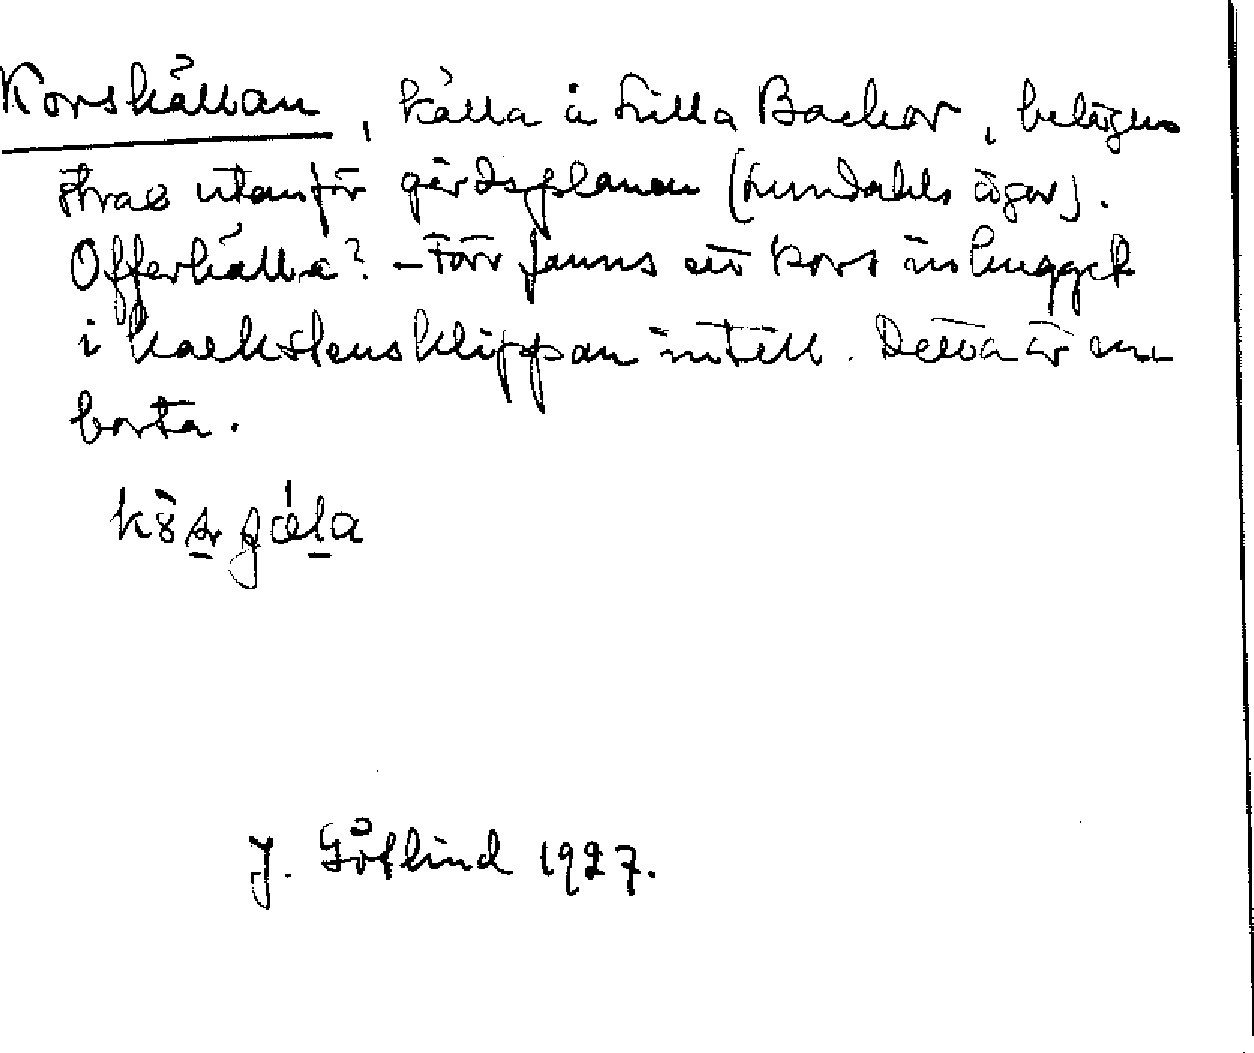 Korskällan, källa å Lilla Backor, belägen
strax utanför gårdsplanen (Lundahls ägor).
Offerkälla? – Förr fanns ett kors inhugget
i kalkstensklippan intill. Detta är nu
borta.
J. Götlind 1927.